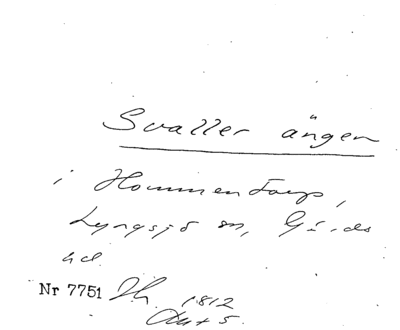 Svaller ängen
i Hommentorp,
Lyngsjö sn, Gärds
hd
Nr 7751 1812